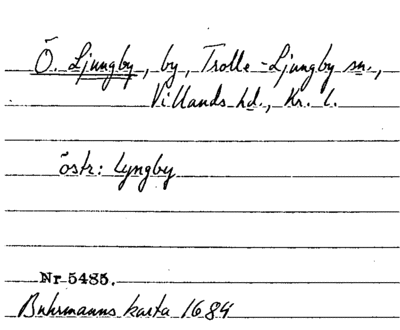 Ö. Ljungby, by, Trolle-Ljungby sn.,
Villands hd., Kr. l.
östr: Lyngby
Nr 5485.
Buhrmanns karta 1684